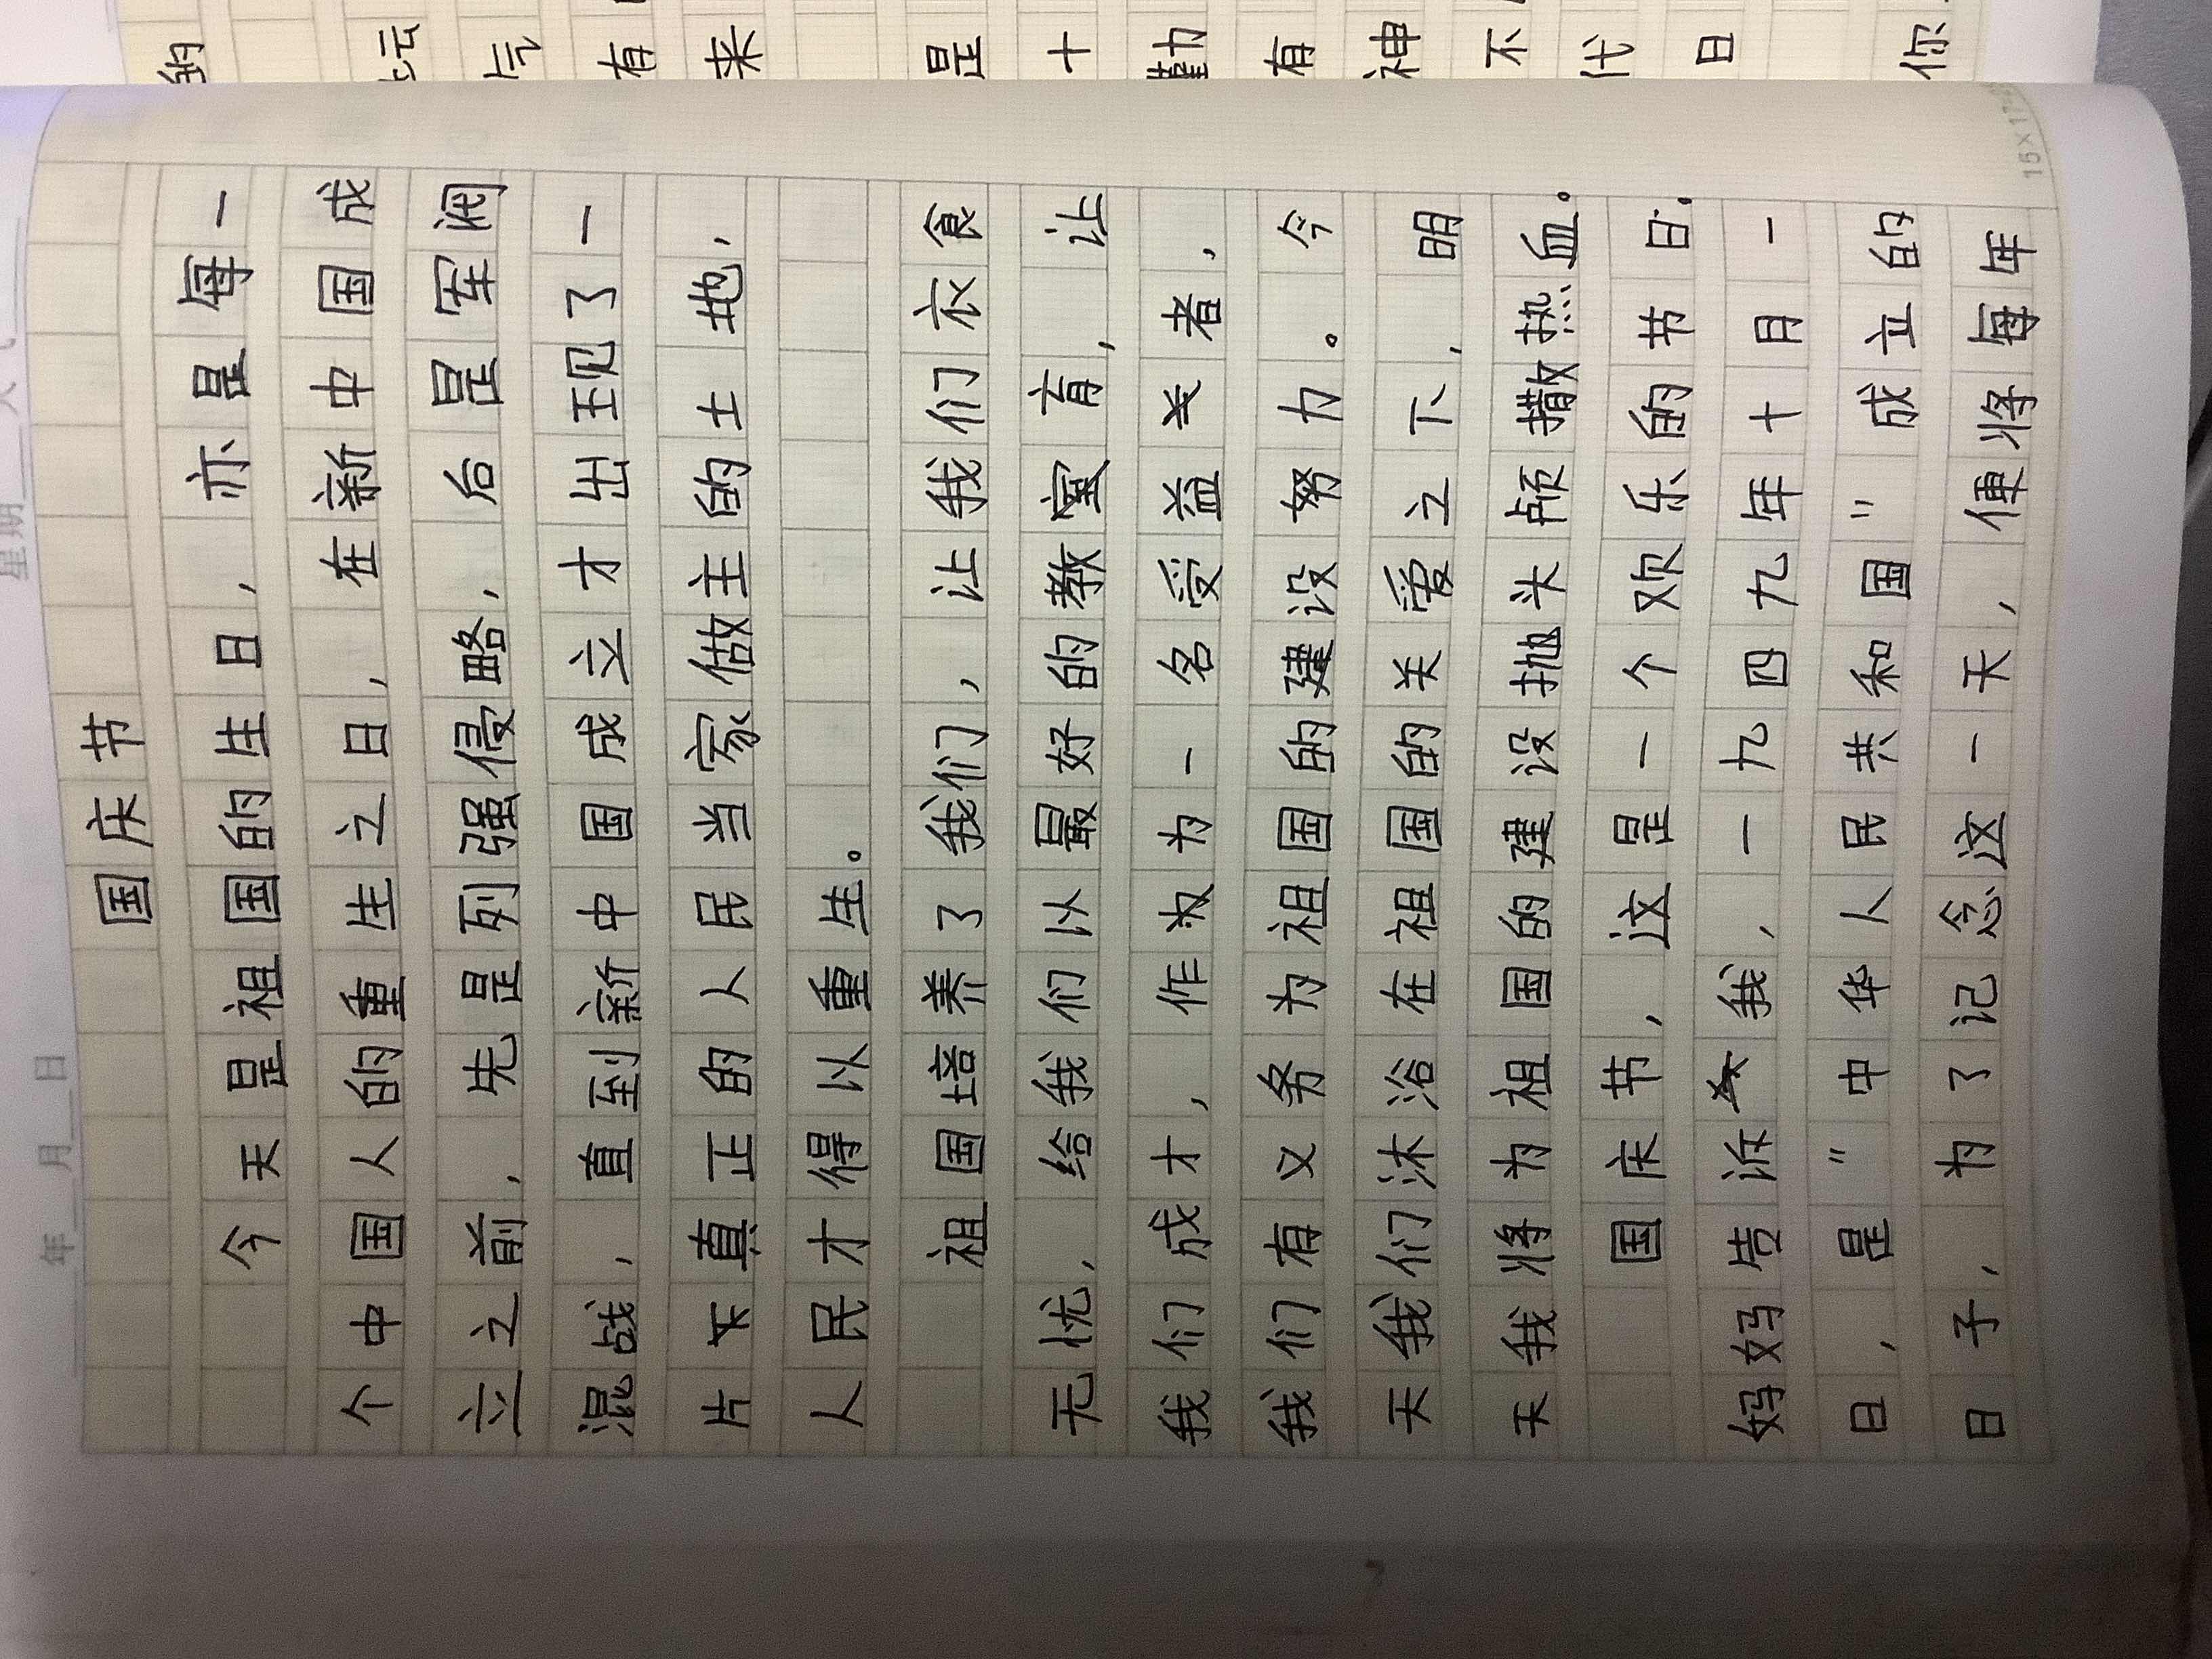 年 月 日 星期 天气
国庆节
今天是祖国的生日，亦是每一
个中国人的重生之日，在新中国成
立之前，先是列强侵略，后是军阀
混战，直到新中国成立才出现了一
片真正的人民当家做主的土地，
人民才得以重生。
祖国培养了我们，让我们衣食
无忧，给我们以最好的教育，让
我们成才，作为为一名受益者，
我们有义务为祖国的建设努力。今
天我们沐浴在祖国的关爱之下，明
天我将为祖国的建设抛头颅撒热血。
国庆节，这是一个欢乐的节日.
妈妈告诉我，一九四九年十月一
日，是"中华人民共和国"成立的
日子，为了记念这一天，便将每年
16×17=
的
有
来
是
十
勤
有
神
不
代
日
你